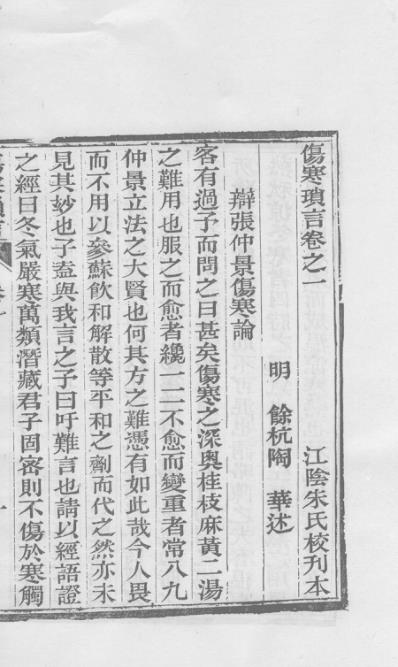 傷寒瑣言卷之一 江陰朱氏校刊本
明 餘杭陶 華述
辯張仲景傷寒論
客有過予而問之曰甚矣傷寒之深奧桂枝麻黃二湯
之難用也服之而愈者纔一二不愈而變重者常八九
仲景立法之大賢也何其方之難憑有如此哉今人畏
而不用以參蘇飲和解散等平和之劑而代之然亦未
見其妙也子盍與我言之予曰吁難言也請以經語證
之經曰冬氣嚴寒萬類潛藏君子固密則不傷於寒觸